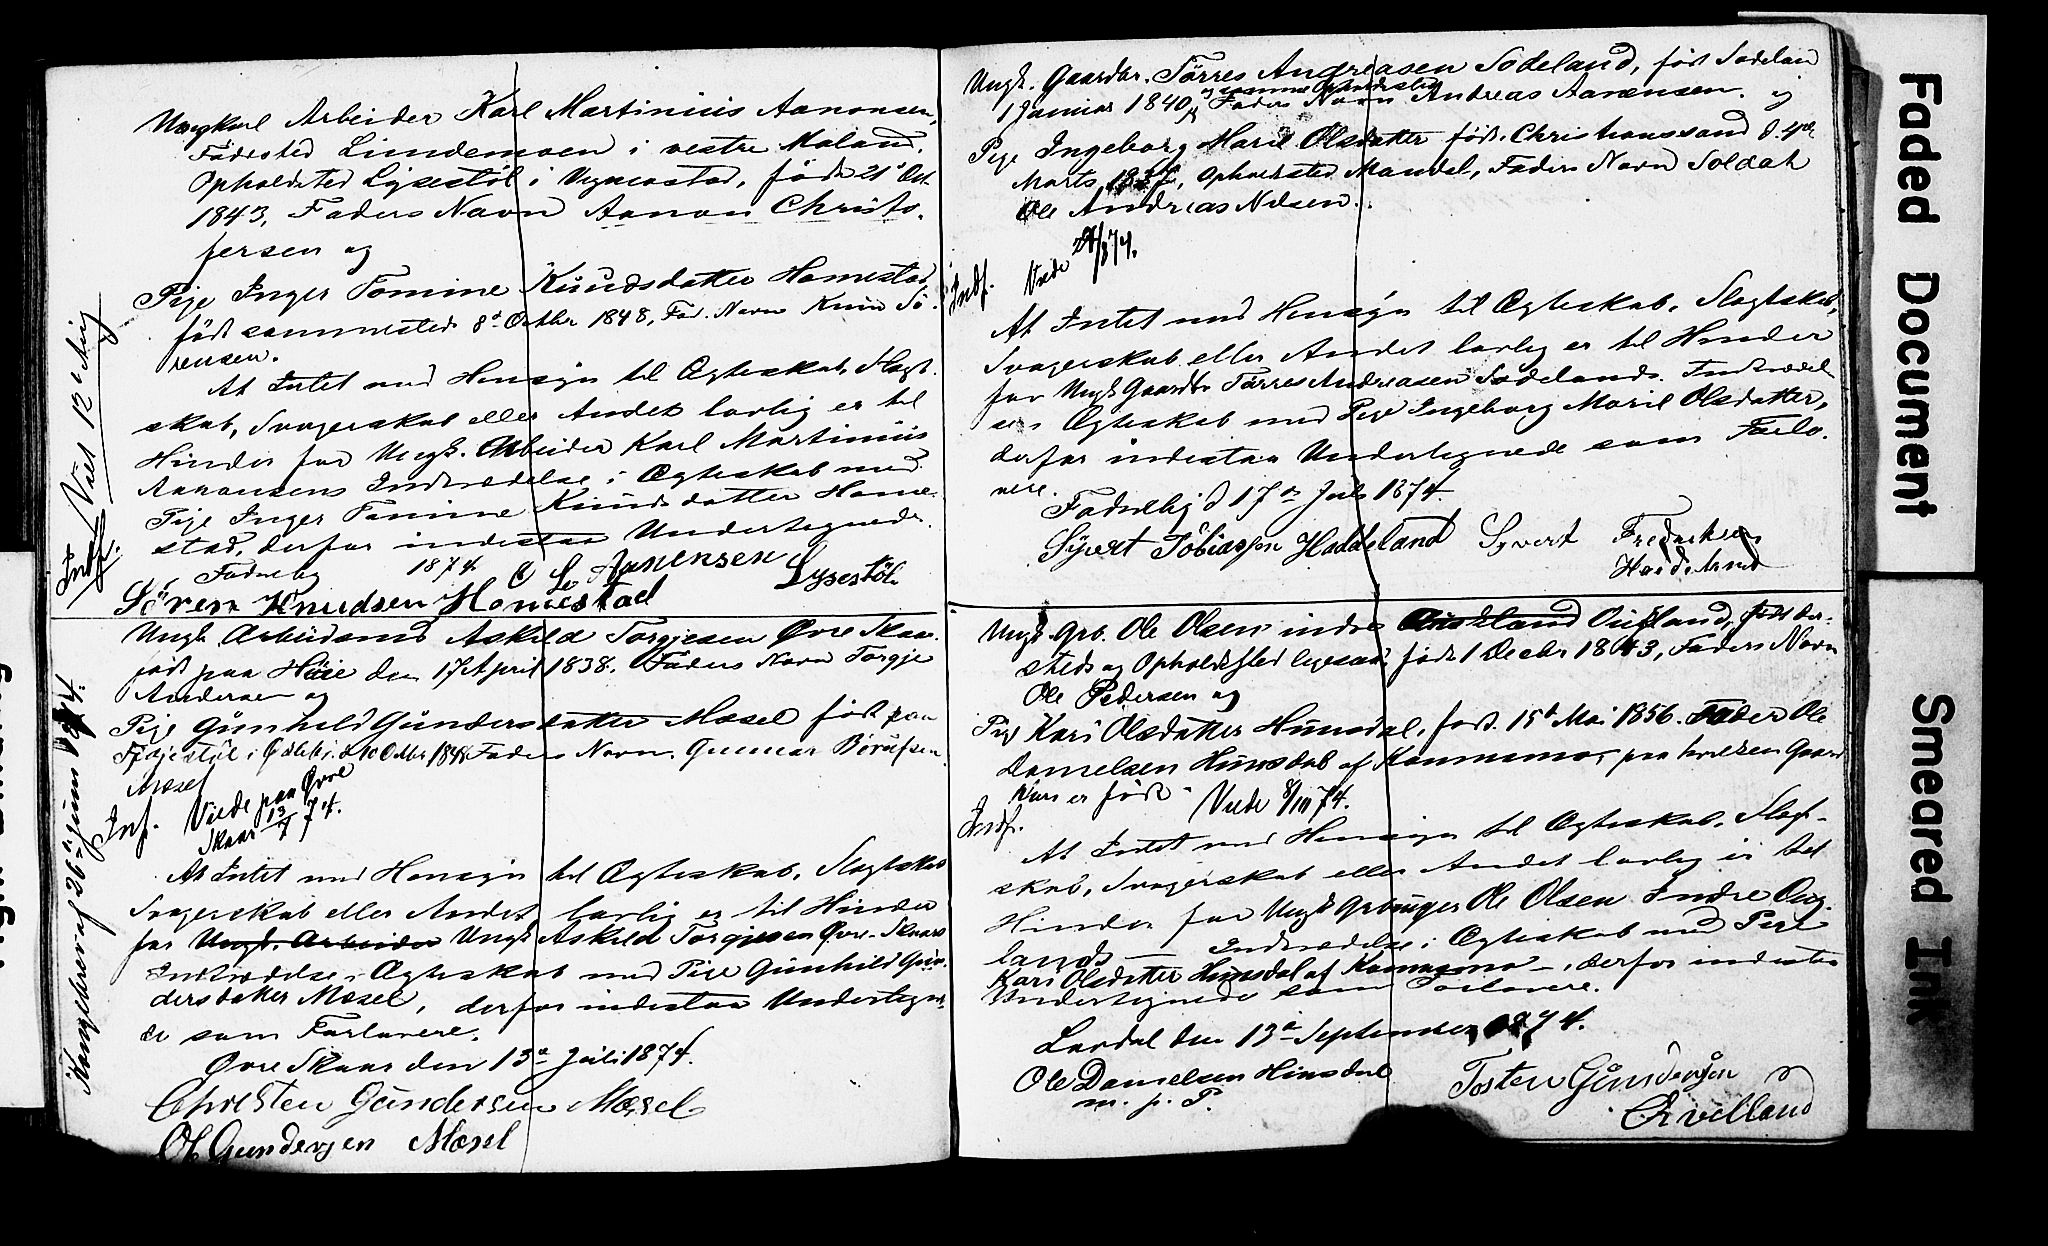 Ungkarl Arbeider Karl Martinius Aanonsen,
Fødested Lindemoen i vestre Moland,
Opholdsted Lysestöl i Vigmostad, født 21de Oct.
1843, Faders Navn Aanon Christo-
fersen og
Pige Inger Tomine Knudsdatter Homestad
født sammesteds 8de Octbr 1848, Fad. Navn Knud Sö-
rensen.
At Intet med Hensyn til Ægteskab, Slægt-
skab, Svogerskab eller Andet lovlig er til
Hinder for Ungk. Arbeider Karl Martinius
Aanonsens Indtrædelse i Ægteskab med
Pige Inger Tomine Knudsdatter Home-
stad, derfor indestaa Undertegnede.
Fodnebÿ 1874
Aanensen Lysestöl
Sören Knudsen Homestad
Indf. Viet 12te Aug
Ungk. Arbeidsmd Askild Torgjesen Øvre Skaar
født paa Höie den 17de April 1838. Faders Navn Torgje
Andersen og
Pige Gunhild Gundersdatter Mæsel født paa
i d. 10 Octbr. 1848 Faders Navn. Gunnar
Mæsel
Inf. Viede paa Øvre
Skaar 13/7 74.
Kongebrev af 26de Juni 1874.
At Intet med Hensyn til Ægteskab, Slægtskab
Svogerskab eller Andet, lovlig er til Hinder
for Ungk. Arbeider Ungk Askild Torgjesen Øvre-Skaars
Indtrædelse i Ægteskab med Pige Gunhild Gun-
dersdatter Mæsel, derfor indestaa Undertegne-
de som Forlovere.
Øvre Skaar den 13de Juli 1874.
Christen Gundersen Mæsel
Ol Gundersen Mæsel
Ungk. Gaardbr. Tørres Andreasen Sodeland, født Sodeland
1 Januar 1840, og samme Opholdsted Faders Navn Andreas Aanensen. og
Pige Ingeborg Marie Olsdatter født. Christianssand d. 4de
Marts, Opholdsted Mandal, Faders Navn Soldat
Ole Andreas Nilsen.
Indf. Viede
At Intet med Hensyn til Ægteskab, Slægtskab,
Svogerskab eller Andet lovlig er til Hinder
for Ungk Gaardbr Tørres Andreasen Sodelands Indtrædel-
se i Ægteskab med Pige Ingeborg Marie Olsdatter,
derfor indestaa Undertegnede som Forlo-
vere.
Fodnebÿ d 17de Juli 1874.
Syvert Tobiassen Haddeland Syvert Fredriksen
Haddeland
Ungk. Grb. Ole Olsen indre Øvland, født der-
steds og Opholdssted ligesaa, født 1 Decbr 1843, Faders Navn
Ole Pedersen og
Pige Kari Olsdatter Hunsdal, født. 15de Mai 1856. Fader Ole
Danielsen Hunsdal af Konnesmo, paa hvilken Gaard
Kari er født
Indf. Viede 8/10 74.
At Intet med Hensyn til Ægteskab, Slægt-
skab, Svogerskab eller Andet lovlig er til
Hinder for Ungk Grbruger Ole Olsen Indre Øv-
lands — Indtrædelse i Ægteskab med Pige
Kari Olsdatter Hunsdal af Konnesmo —, derfor indestaa
Undertegnede som Forlovere.
Lavdal den 13de September 1874.
Ole Danielsen Hunsdal Tosten Gundersen
m. p. P. Øvelland
Faded Document
Smeared Ink